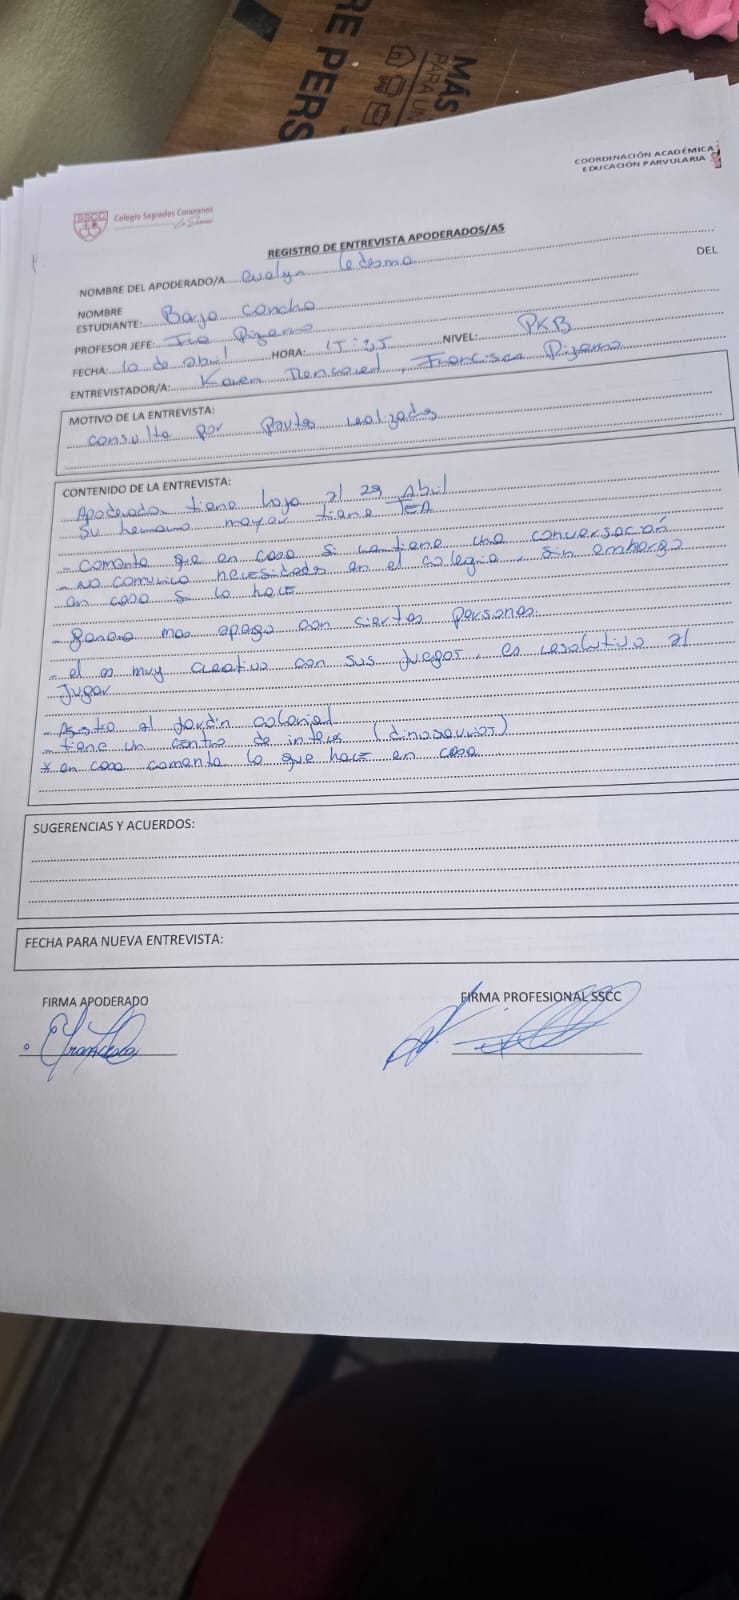 RE PERS
MÁS
PARA UN
COORDINACIÓN ACADÉMICA
EDUCACIÓN PARVULARIA
SSCC Colegio Sagrados Corazones
REGISTRO DE ENTREVISTA APODERADOS/AS
NOMBRE DEL APODERADO/A evelyn ledesma
NOMBRE DEL
ESTUDIANTE: Concha
PROFESOR JEFE: Pizarro
FECHA: 10 de abril HORA: 15:25 NIVEL: PKB
ENTREVISTADOR/A: Karen, Francisca Pizarro
MOTIVO DE LA ENTREVISTA:
consulta por Pautas realizadas
CONTENIDO DE LA ENTREVISTA:
Apoderada tiene hora al 29 Abril
Su hermano mayor tiene TEA
- Comenta que en casa si mantiene una conversación
- No comunica necesidades en el colegio, sin embargo
en casa si lo hace
- genera mas apego con ciertas personas.
- el es muy creativo con sus juegos, es resolutivo al
Jugar
- Asistio al Jardin colonial
- tiene un centro de interes (dinosaurios)
* en casa comenta lo que hace en casa
SUGERENCIAS Y ACUERDOS:
FECHA PARA NUEVA ENTREVISTA:
FIRMA APODERADO FIRMA PROFESIONAL SSCC